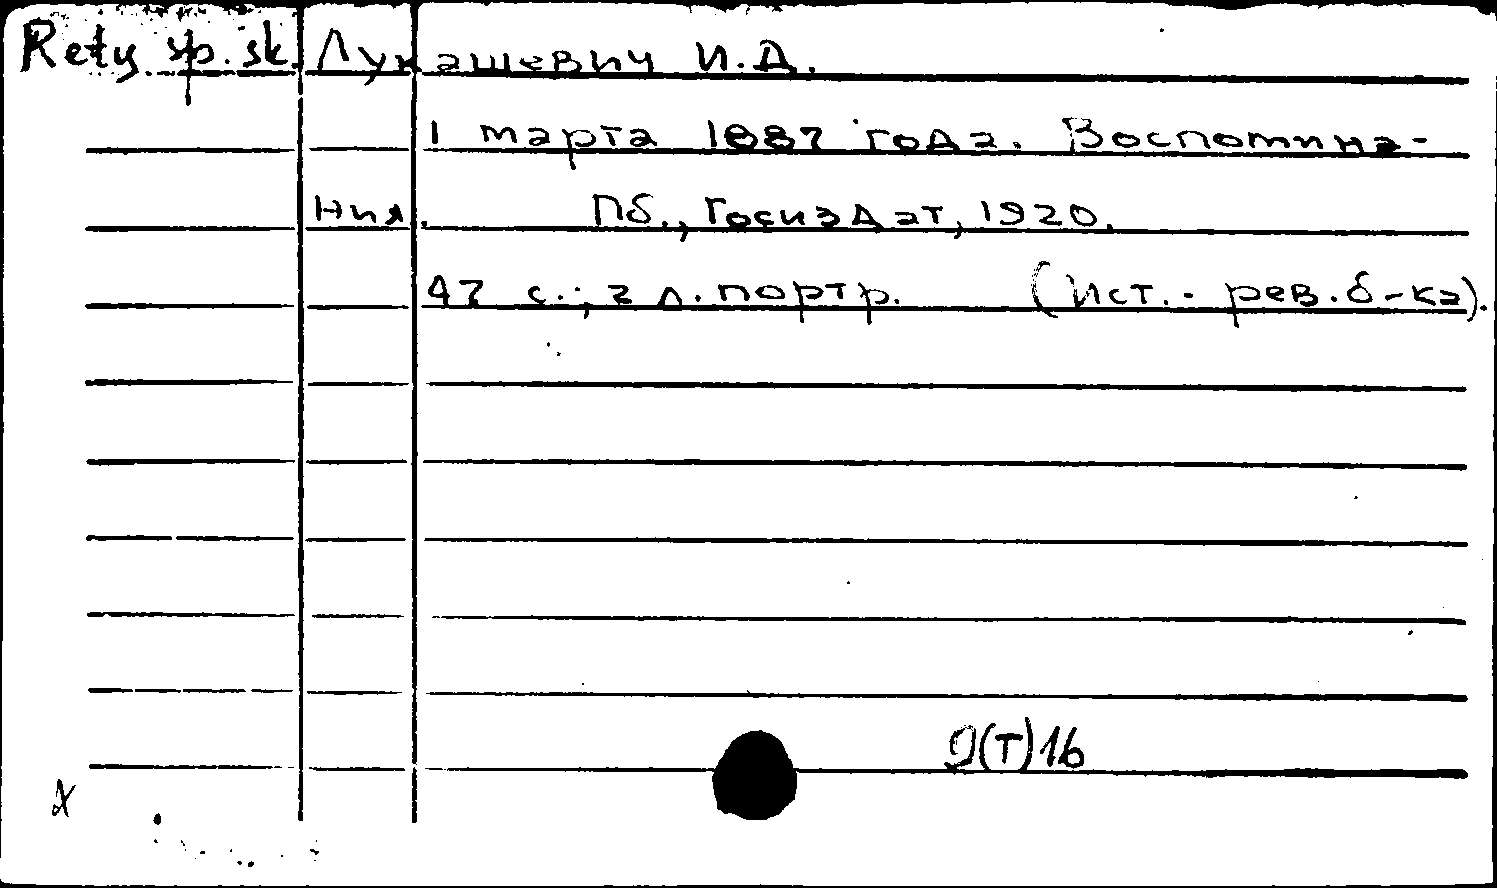 Retų sp. sk. Лукашевич И.Д.
1 марта 1887 года. Воспомина-
ния. Пб., Госиздат, 1920.
47 с.; 2 л. портр. (Ист.- рев. б-ка).
9(T)16